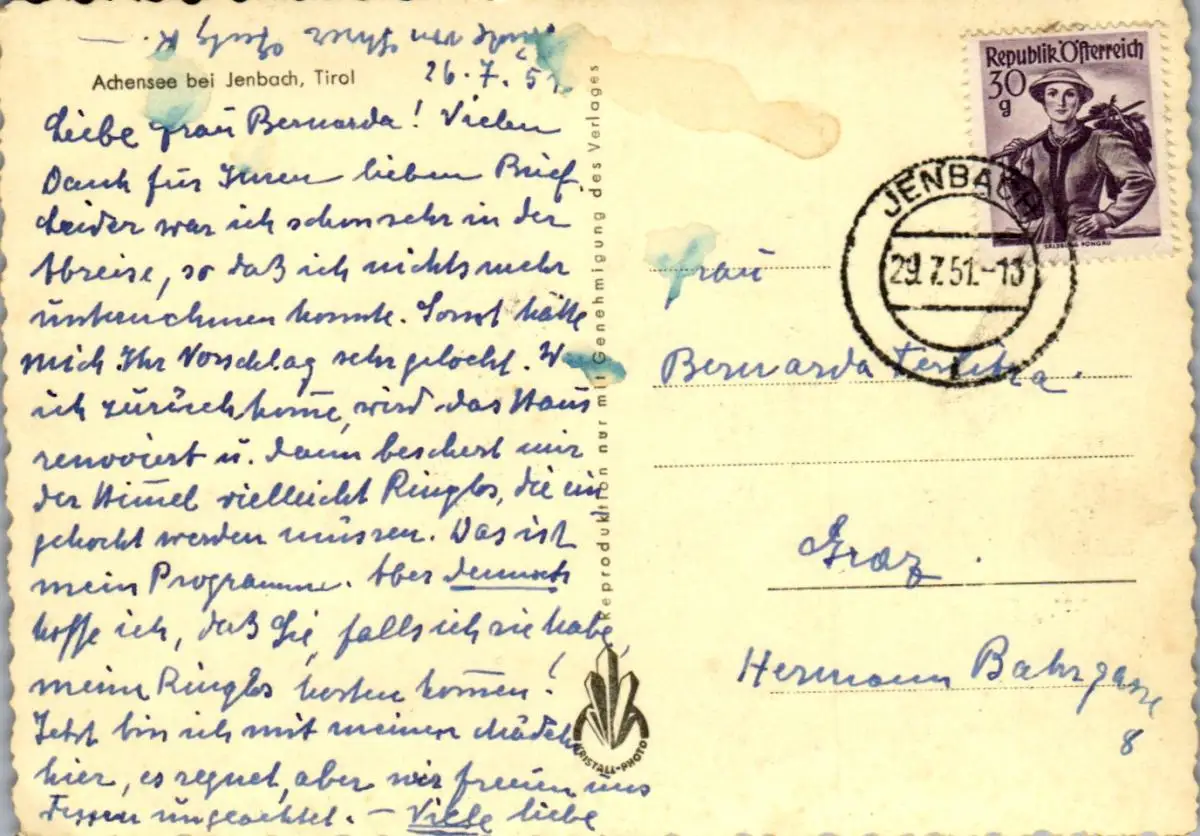 Achensee bei Jenbach, Tirol
26.7.51
Liebe Frau Bernarda! Vielen
Dank für Ihren lieben Brief.
Leider war ich schon sehr in der
Abreise, so daß ich nichts mehr
unternehmen konnte. Sonst hätte
mich Ihr Vorschlag sehr gelockt. W
ich zurückkom̄e, wird das Haus
renoviert u. dann beschert mir
der Him̄el vielleicht Ringlos, die ein
gekocht werden müssen. Das ist
mein Programm. Aber dennoch
hoffe ich, daß Sie, falls ich sie habe,
meine Ringlos kosten kom̄en!
Jetzt bin ich mit meinen Mädeln
hier, es regnet, aber wir freuen uns
dessen ungeachtet. – Viele liebe
von Ihrer
Reproduktion nur mit Genehmigung des Verlages
KRISTALL-PHOTO
Republik Österreich
30
g
SALZBURG, PONGAU
JENBACH
29.7.51.-13
Frau
Bernarda
Graz.
Hermann Bahrgasse
8